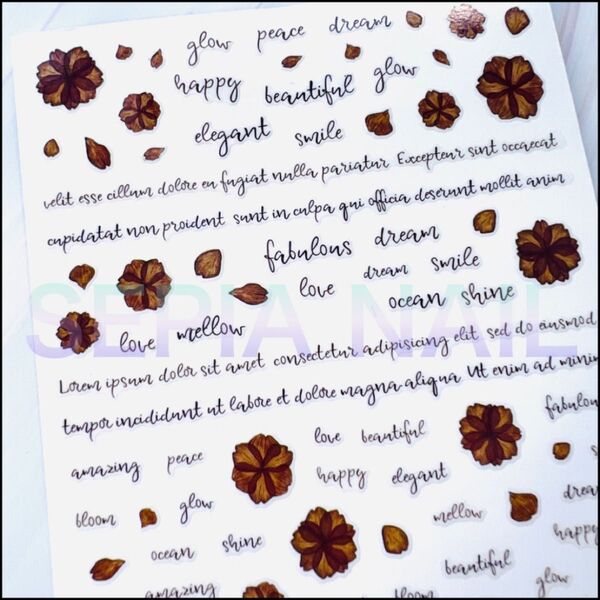 glow peace dream
happy beautiful glow
elegant smile
velit esse cillum dolore eu fugiat nulla pariatur Excepteur sint occaecat
cupidatat non proident sunt in culpa qui officia deserunt mollit anim
fabulous dream
love dream smile
ocean shine
SEPIA NAIL
love mellow
Lorem ipsum dolor sit amet consectetur adipisicing elit sed do eiusmod
tempor incididunt ut labore et dolore magna aliqua Ut enim ad minim
fabulous
amazing peace love beautiful
happy elegant
bloom glow mellow
ocean shine happy
beautiful
amazing bloom glow